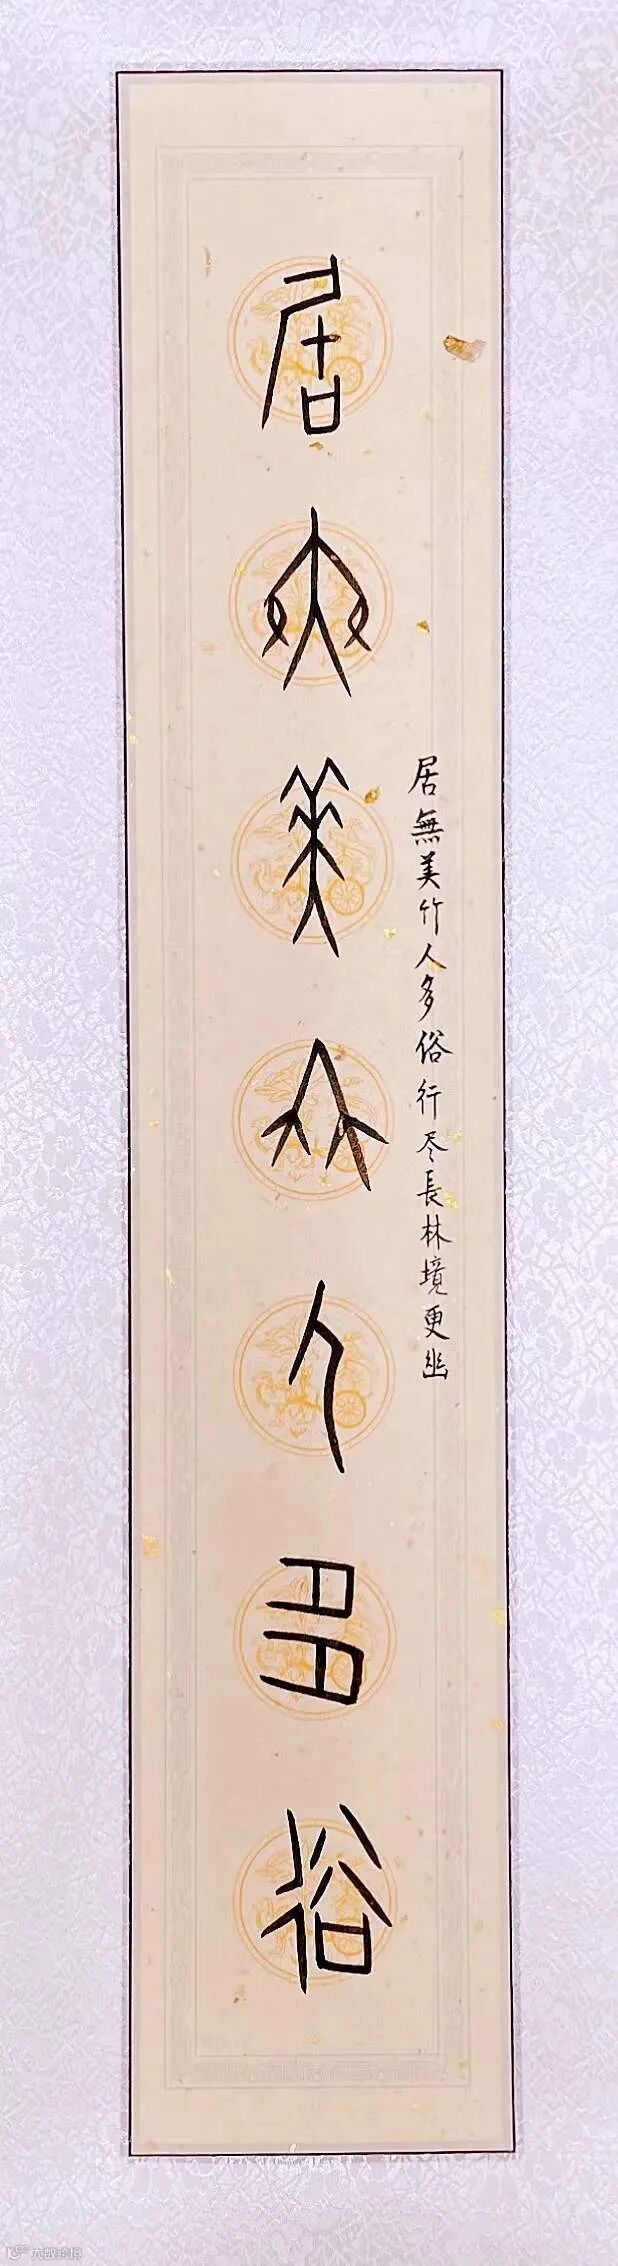 居無美竹人多俗
居無美竹人多俗行尽長林境更幽
大數跨境